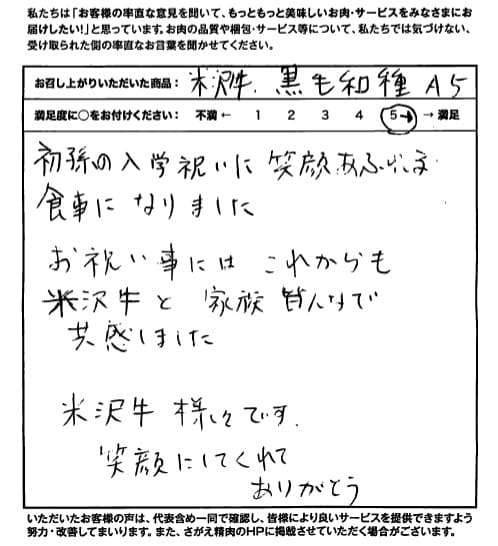 私たちは「お客様の率直な意見を聞いて、もっともっと美味しいお肉・サービスをみなさまにお
届けしたい!」と思っています。お肉の品質や梱包・サービス等について、私たちでは気づけない、
受け取られた側の率直なお言葉を聞かせてください。
お召し上がりいただいた商品: 米沢牛. 黒毛和種 A5
満足度に○をお付けください: 不満 ← 1 2 3 4 5 → 満足
初孫の入学祝いに 笑顔あふれる
食事に なりました
お祝い事には これからも
米沢牛と 家族 皆んなで
共感しました
米沢牛 様々です.
笑顔にしてくれて
ありがとう
いただいたお客様の声は、代表含め一同で確認し、皆様により良いサービスを提供できますよう
努力・改善してまいります。また、さがえ精肉のHPに掲載させていただく場合がございます。